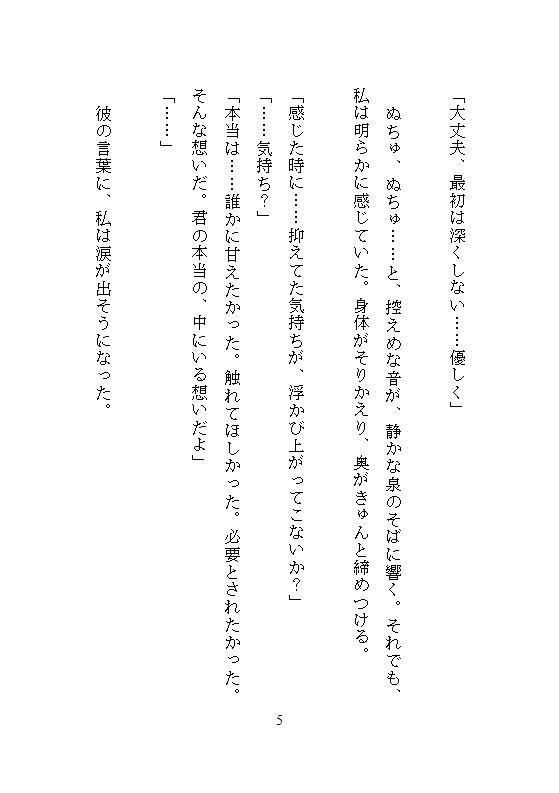 「大丈夫、最初は深くしない……優しく」
　ぬちゅ、ぬちゅ……と、控えめな音が、静かな泉のそばに響く。それでも、
私は明らかに感じていた。身体がそりかえり、奥がきゅんと締めつける。
「感じた時に……抑えてた気持ちが、浮かび上がってこないか？」
「……気持ち？」
「本当は……誰かに甘えたかった。触れてほしかった。必要とされたかった。
そんな想いだ。君の本当の、中にいる想いだよ」
「……」
　彼の言葉に、私は涙が出そうになった。
5